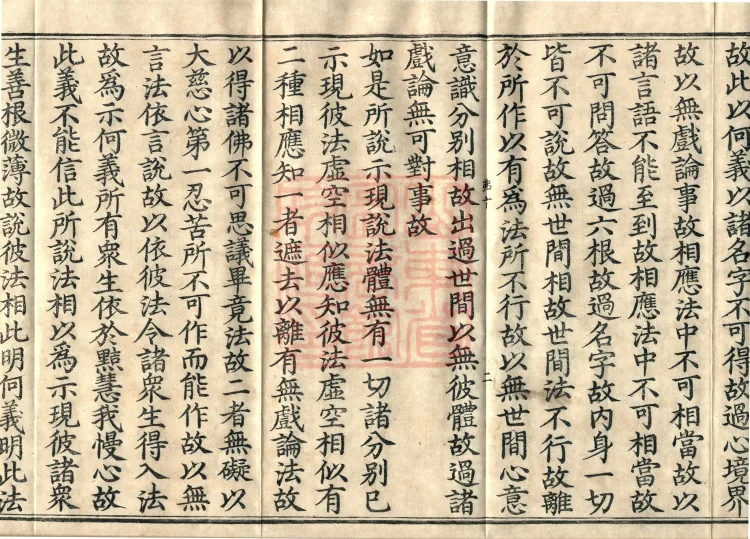 故此以何義以諸名字不可得故過心境界
故以無戲論事故相應法中不可相當故以
諸言語不能至到故相應法中不可相當故
不可問答故過六根故過名字故内身一切
皆不可説故無世間相故世間法不行故離
於所作以有爲法所不行故以無世間心意
意識分别相故出過世間以無彼體故過諸
戲論無可對事故
如是所説示現説法體無有一切諸分别已
示現彼法虚空相似應知彼法虚空相似有
二種相應知一者遮去以離有無戲論法故
以得諸佛不可思議畢竟法故二者無礙以
大慈心第一忍苦所不可作而能作故以無
言法依言説故以依彼法令諸衆生得入法
故爲示何義所有衆生依於黠慧我慢心故
此義不能信此所説法相以爲示現彼諸衆
生善根微薄故説彼法相此明何義明此法